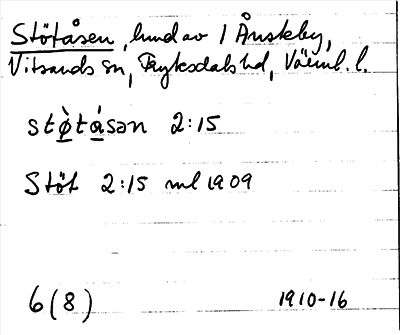 Stötåsen, lund av 1 Ånskeby,
Vitsands sn, Fryksdals hd, Värml. l.
stø̀tásən 2:15
Stöt 2:15 ml 1909
6(8) 1910-16